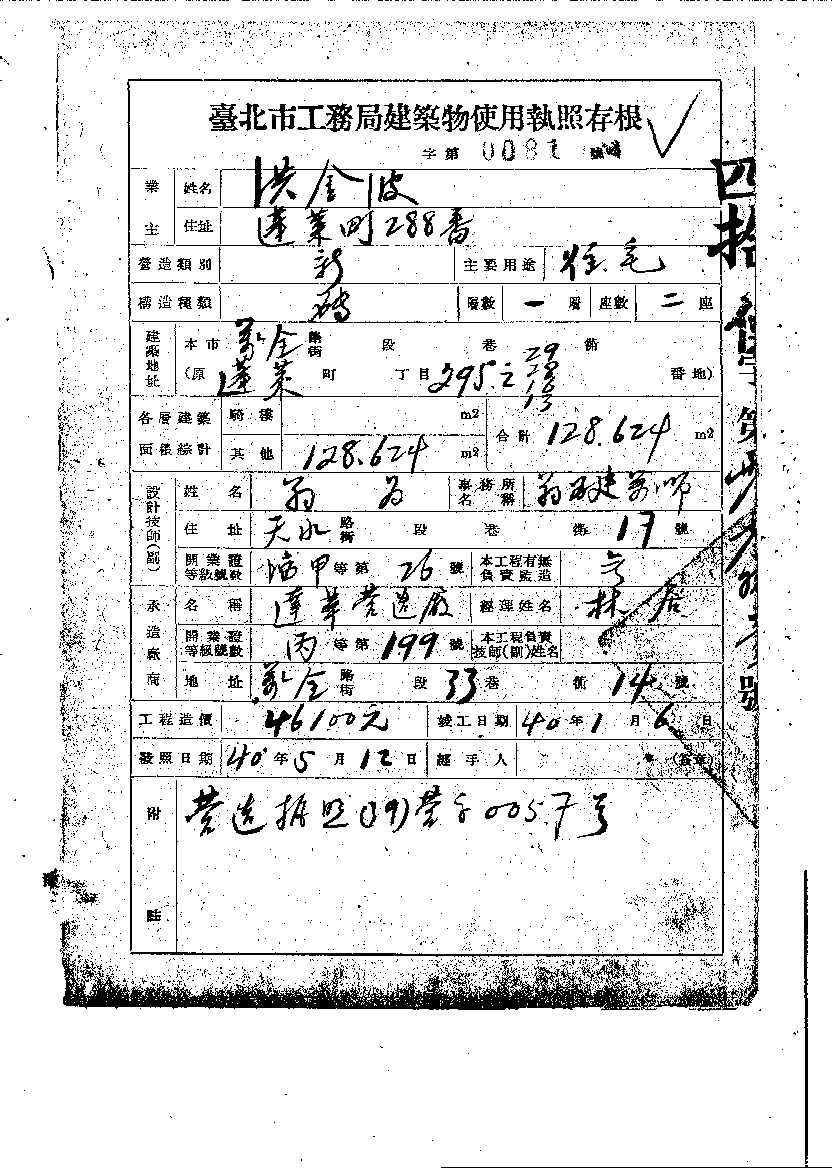 臺北市工務局建築物使用執照存根
字第 0081 號
業主 姓名 洪金波
住址 蓬萊町288番
營造類別 新 主要用途 住宅
構造種類 磚 層數 一 層 座數 二 座
建築地址 本市 萬全 路街 段 巷 衖
(原 蓬萊 町 丁目 295之 29 28 18 13 番地)
各層建築面積綜計 騎樓 m2 合計 128.624 m2
其他 128.624 m2
設計技師(副) 姓名 事務所名稱
住址 天水 路街 段 巷 衖 17 號
開業證等級號數 甲等第 26 號 本工程有無負責監造
承造廠商 名稱 蓬華營造廠 經理姓名 林
開業證等級號數 丙等第 199 號 本工程負責技師(副)姓名
地址 萬全 路街 段 33 巷 衖 14 號
工程造價 46100元 竣工日期 40年1月6日
發照日期 40年5月12日 經手人 (蓋章)
附註 營造執照(39)營字0057号
四拾
使
字
第
號